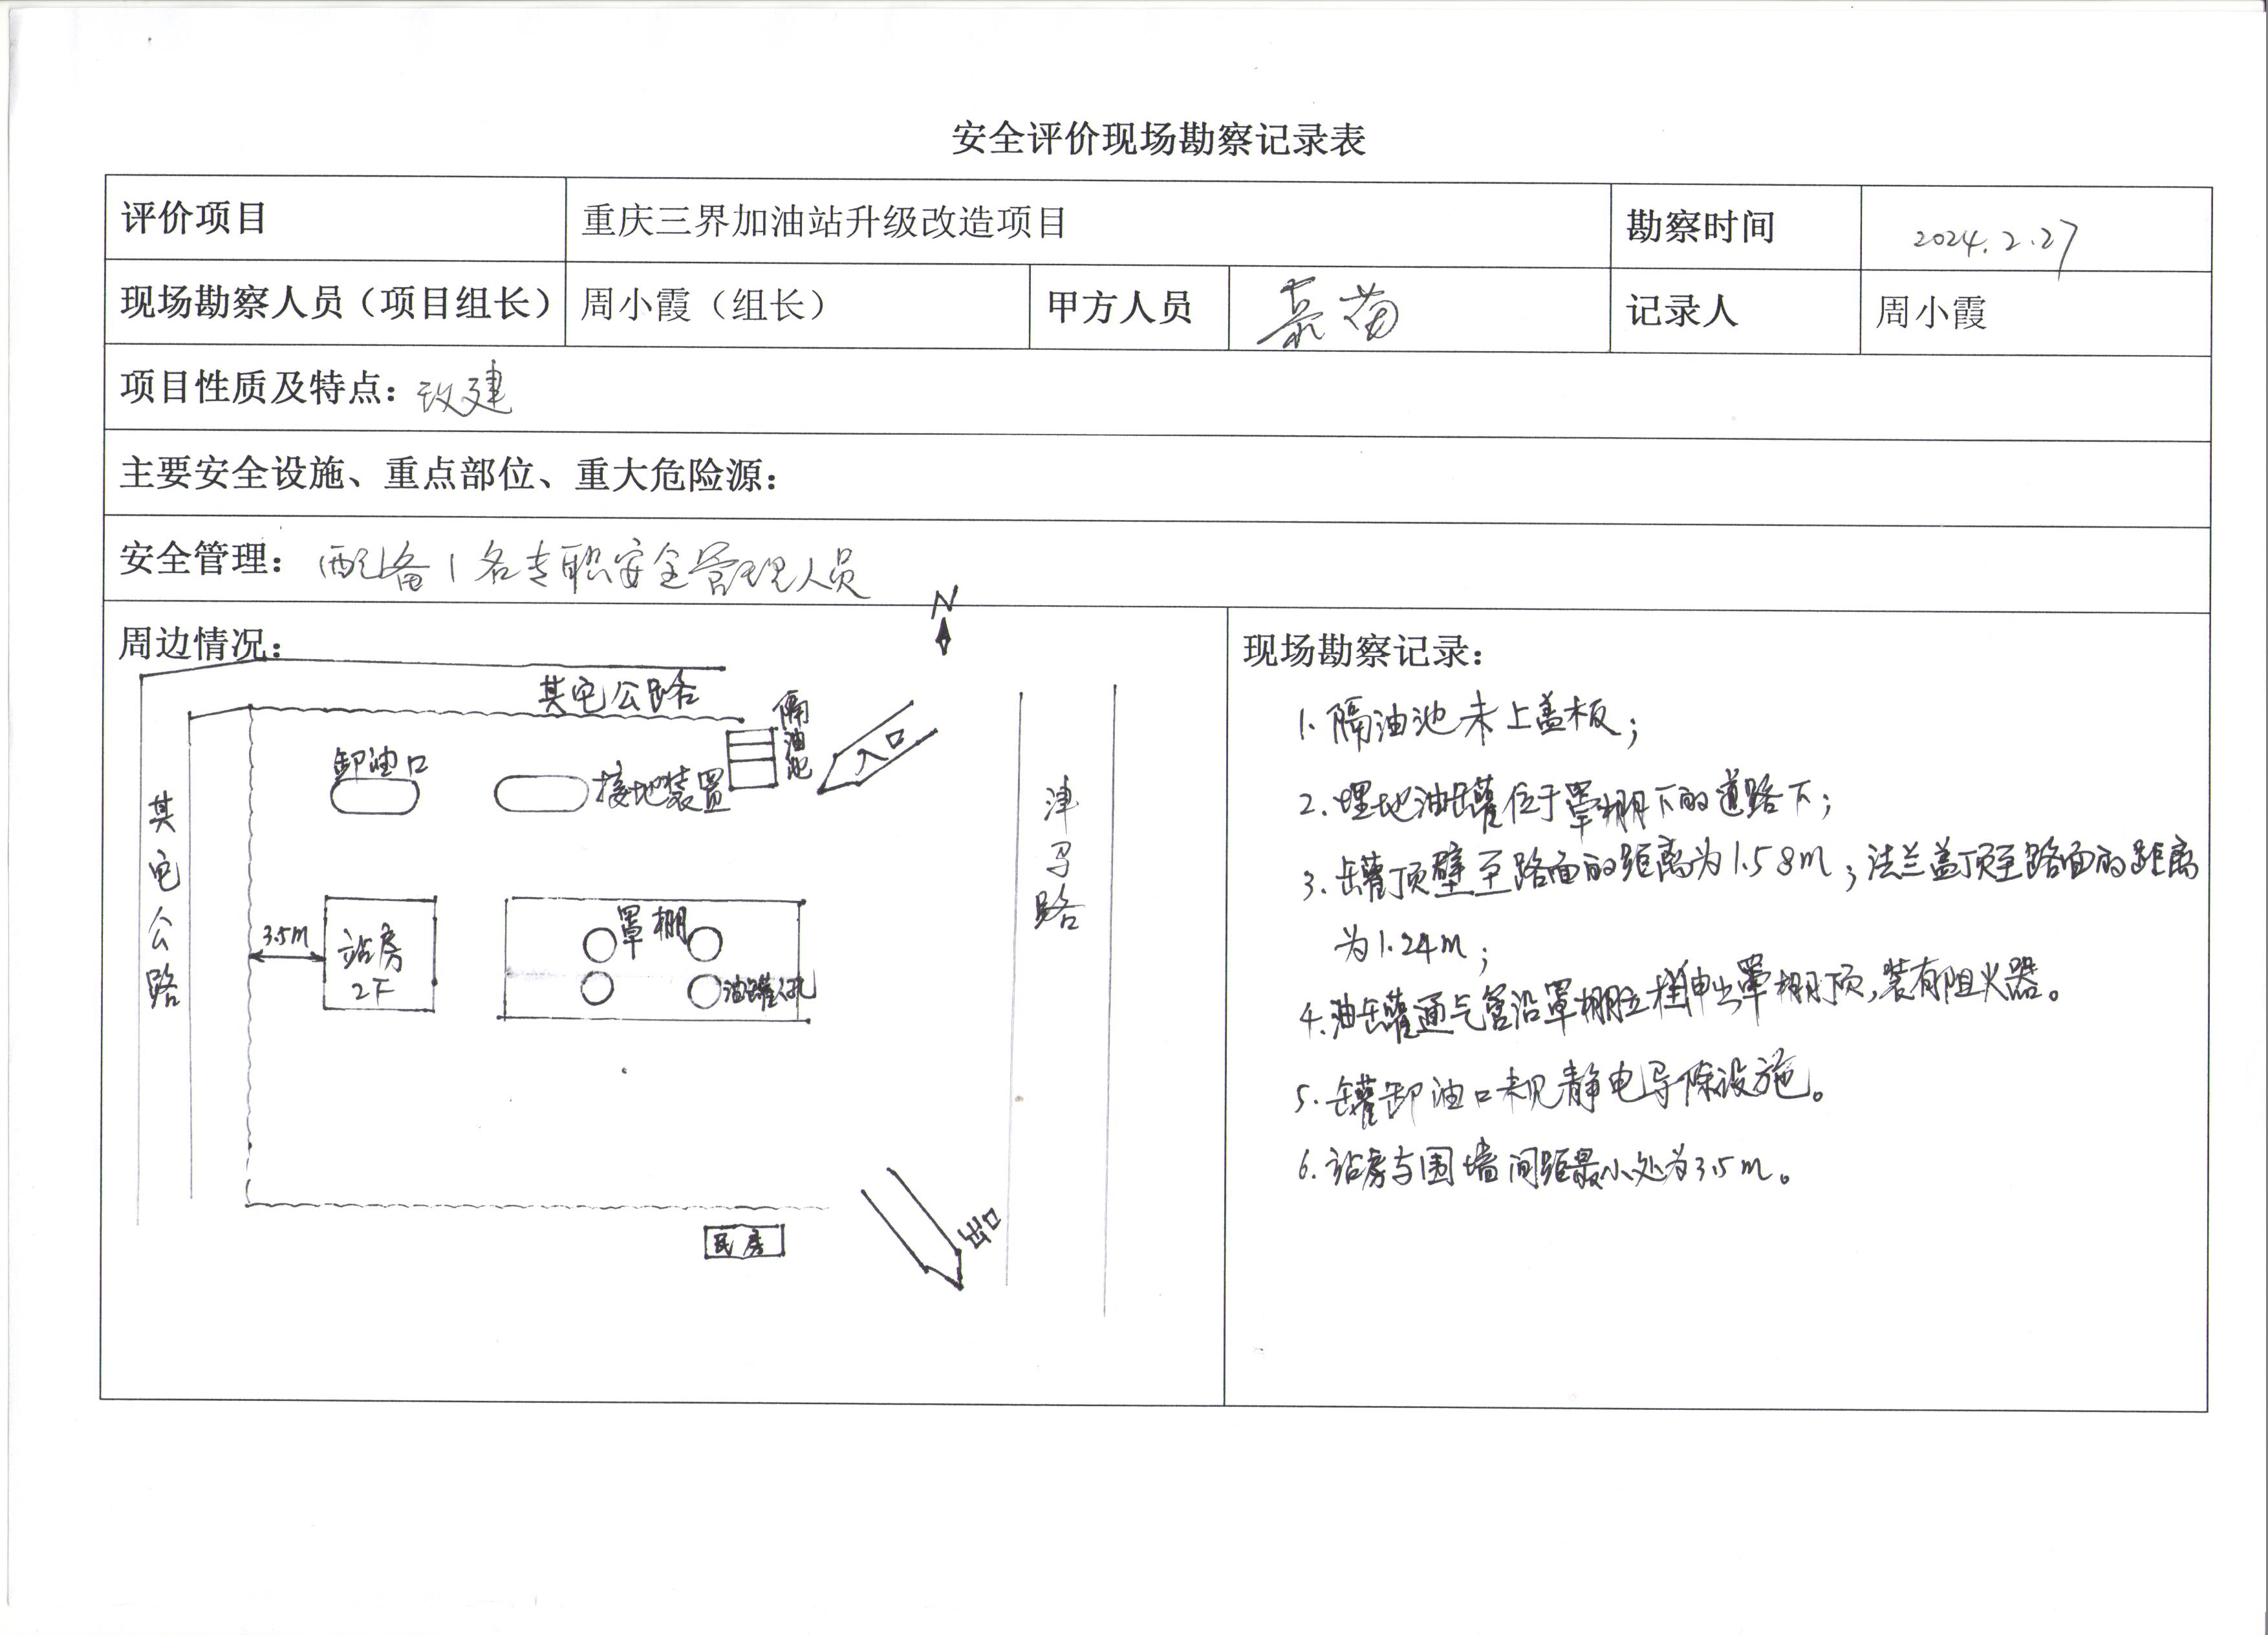 安全评价现场勘察记录表
评价项目 重庆三界加油站升级改造项目 勘察时间 2024.2.27
现场勘察人员（项目组长） 周小霞（组长） 甲方人员 记录人 周小霞
项目性质及特点：改建
主要安全设施、重点部位、重大危险源：
安全管理：配备1名专职安全管理人员
N
周边情况：
其它公路
隔油池
入口
卸油口
接地装置
其它公路
津
路
3.5m
站房
2F
罩棚
油罐人孔
民房
出口
现场勘察记录：
1. 隔油池未上盖板；
2. 埋地油罐位于罩棚下的道路下；
3. 罐顶壁至路面的距离为1.58m；法兰盖顶至路面的距离
为1.24m；
4. 油罐通气管沿罩棚立柱伸出罩棚顶，装有阻火器。
5. 罐卸油口未见静电导除设施。
6. 站房与围墙间距最小处为3.5m。